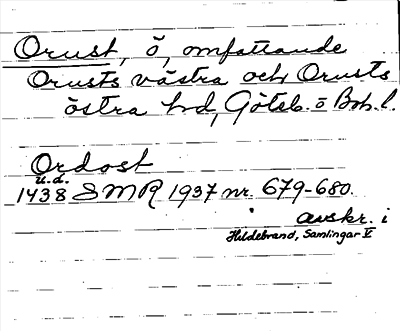 Orust, ö, omfattande
Orusts västra och Orusts
östra hd, Göteb. o Boh. l.
Ordost
u.d.
1438 SMR 1937 nr. 679-680.
avskr. i
Hildebrand, Samlingar V